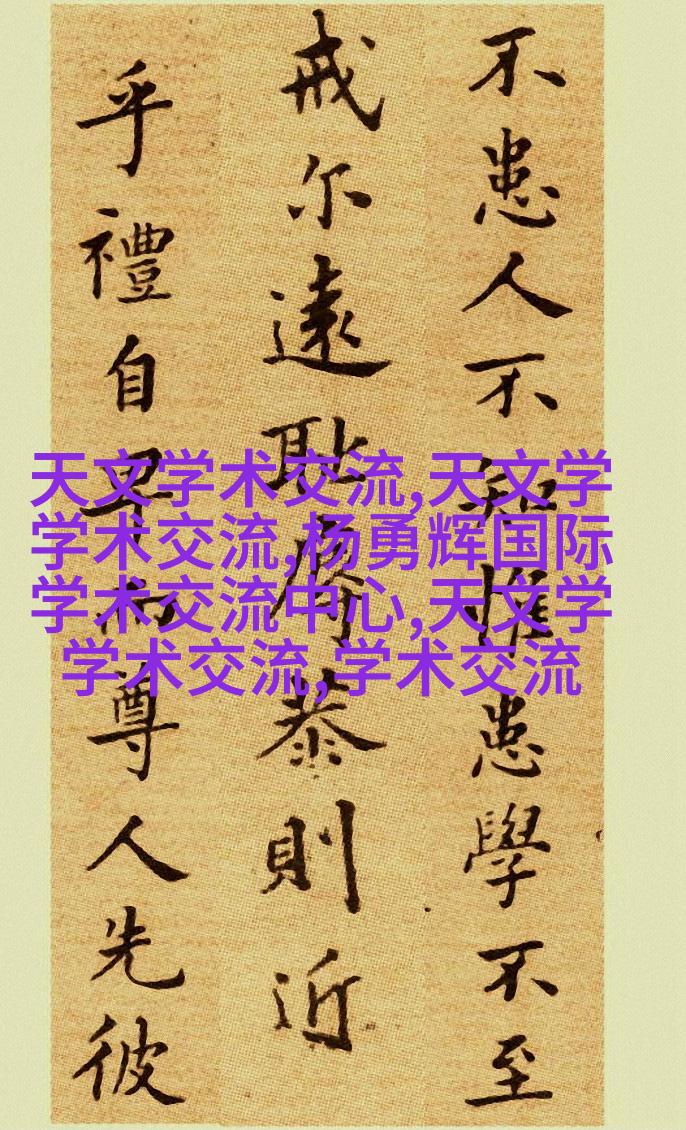 不患人不知惟患學不至
戒尔遠耻辱恭則近
乎禮自卑而尊人先彼
天文学术交流,天文学
学术交流,杨勇辉国际
学术交流中心,天文学
学术交流,学术交流